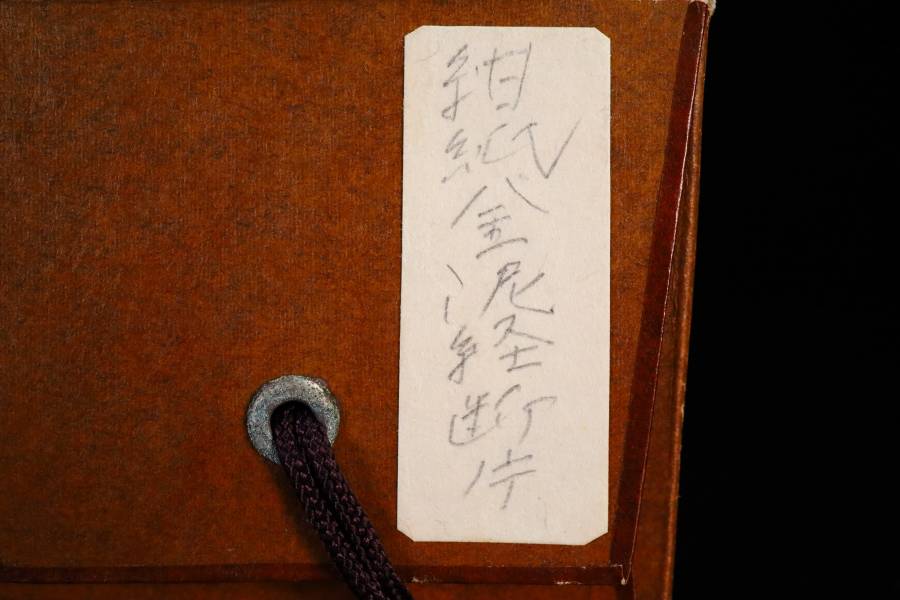 紺紙金泥経断片